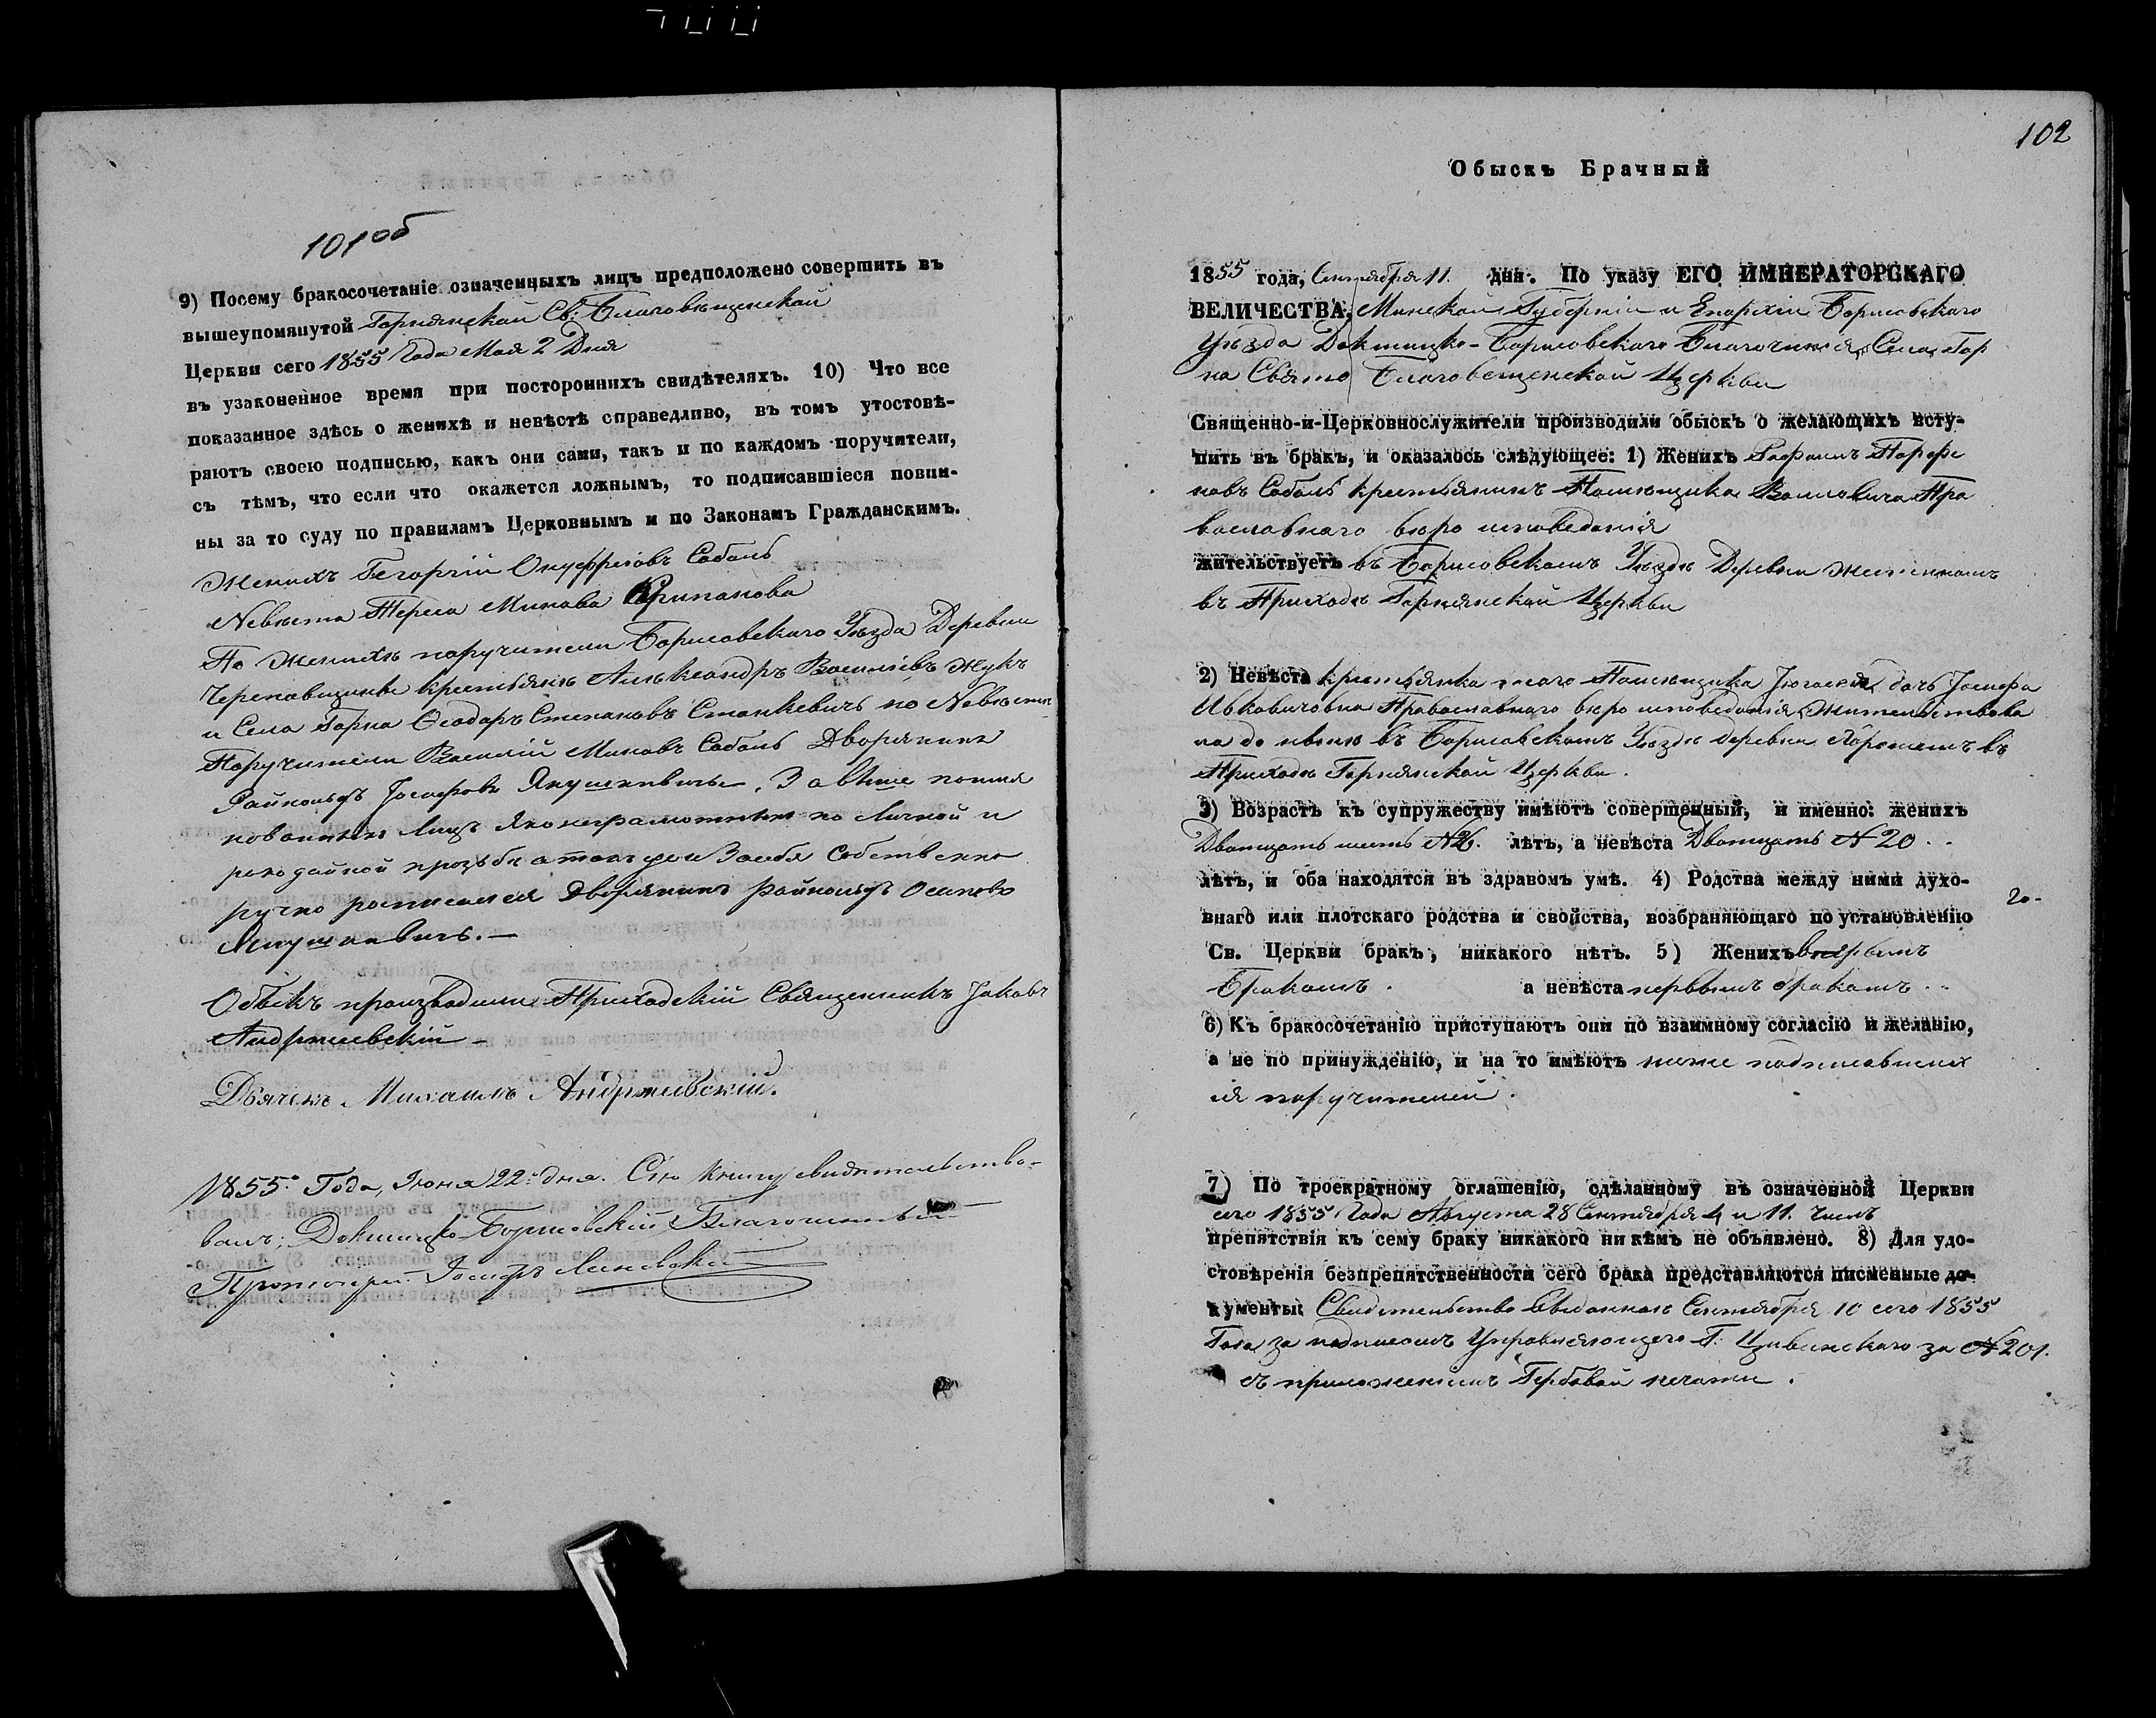 101об
9) Посему бракосочетаніе означенныхъ лицъ предположено совершить въ
вышеупомянутой Горнянской Св: Благовѣщенской
Церкви сего 1855 Года Мая 2 Дня
въ узаконенное время при постороннихъ свидѣтеляхъ. 10) Что все
показанное здѣсь о женихѣ и невѣстѣ справедливо, въ томъ утостовѣ-
ряютъ своею подписью, какъ они сами, такъ и по каждомъ поручители,
съ тѣмъ, что если что окажется ложнымъ, то подписавшіеся повин-
ны за то суду по правиламъ Церковнымъ и по Законамъ Гражданскимъ.
Женихъ Георгій Онуфріовъ Соболь
Невѣста Тереса Минова
По женихѣ поручители Борисовскаго Уѣзда Деревни
крестьяне Александръ Василіевъ Жукъ
и Села Горна Ѳеодоръ Степановъ Станкевичъ по Невѣсте
Поручители Василій Миновъ Соболь Дворянинъ
Райнольдъ Іосифовъ Якушкевичъ. За вѣше поимя
нованныхъ Лицъ Яко неграмотныхъ по личной и
рукодайной прозьбѣ а такъ же и За себя Собственно
ручно росписался Дворянинъ Райнольдъ Осиповъ
Якушкевичъ.—
Обыскъ производили Приходскій Священникъ Іаковъ
Андржиевскій
Дьячекъ Михаилъ Андржиевскій.
1855. Года, Іюня 22. дня. Сію Книгу свидѣтельство-
валъ: Докшицко-Борисовскій Благочинный
Протоіерей Іосифъ
102
Обыскъ Брачный
1855 года, Сентября 11. дня. По указу ЕГО ИМПЕРАТОРСКАГО
ВЕЛИЧЕСТВА, Минской Губерніи и Епархіи Борисовскаго
Уѣзда Докшицко-Борисовскаго Благочинія, Села Гор
на Свято Благовещенской Церкви
Священно-и-Церковнослужители производили обыскъ о желающихъ всту-
пить въ бракъ, и оказалось слѣдующее: 1) Женихъ
новъ Соболь крестьянинъ Помѣщика Воиловича Пра
вославнаго вѣро исповеданія
жительствуетъ въ Борисовскомъ Уѣздѣ Деревни
въ Приходѣ Горнянской Церкви
2) Невѣста крестьянка того Помѣщика дочь Іосифа
Ивковичовна Православнаго вѣро исповеданія, Жительствова
ла до нынѣ въ Борисовскомъ Уѣздѣ деревни въ
Приходѣ Горнянской Церкви.
3) Возрастъ къ супружеству имѣютъ совершенный, и именно: женихъ
Двотцать шесть №26. лѣтъ, а невѣста Двотцать №20..
лѣтъ, и оба находятся въ здравомъ умѣ. 4) Родства между ними духо-
внаго или плотскаго родства и свойства, возбраняющаго по установленію
20-
Св. Церкви бракъ, никакого нѣтъ. 5) Женихъ
Бракомъ. а невѣста первымъ бракомъ..
6) Къ бракосочетанію приступаютъ они по взаимному согласію и желанію,
а не по принужденію, и на то имѣютъ ниже подписавших
ся поручителей.
7) По троекратному оглашенію, сдѣланному въ означенной Церкви
сего 1855 Года Августа 28 Сентября 4 и 11. Числъ
препятствія къ сему браку никакого ни кѣмъ не объявлено. 8) Для удо-
стовѣренія безпрепятственности сего брака представляются писменные до-
кументы: Свидѣтельство Выданное Сентября 10 сего 1855
Года за подписомъ Управляющего Г. за №201.
съ приложеніемъ Гербовой печати.